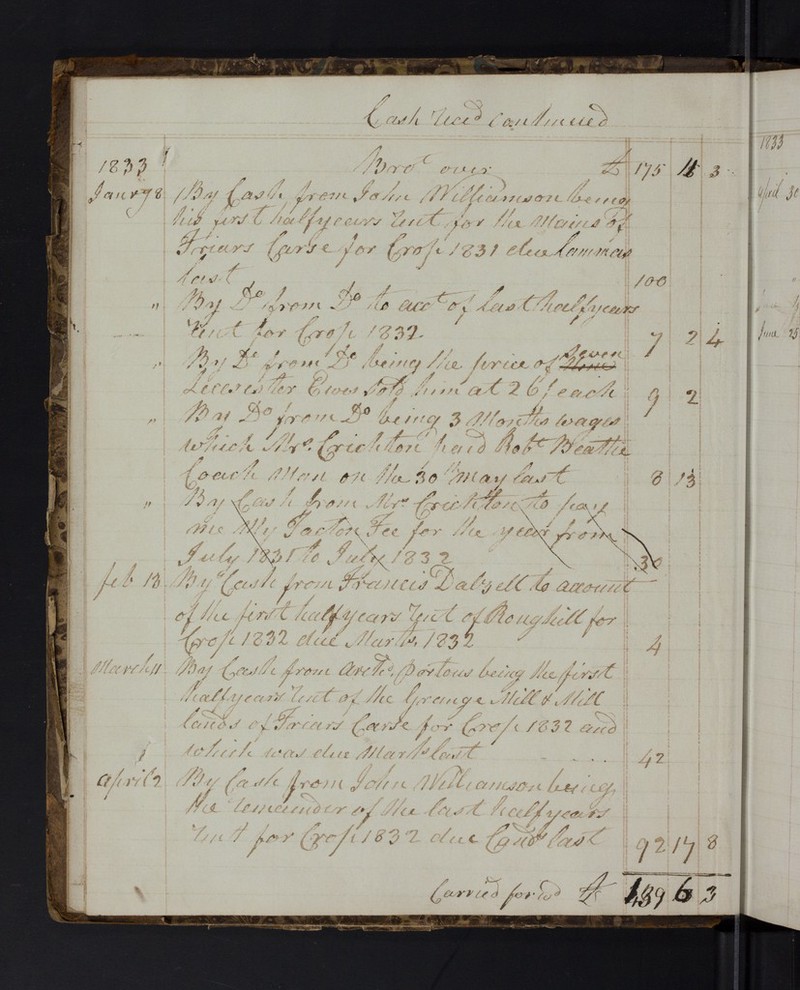 Cash Reced continued
1833 Brot over £ 175 11 3
Janry 8 By Cash from John Williamson being
his first halfyears Rent for the Mains of
Friars Carse for Crop 1831 due Lammas
last 100
" By Do from Do to acct of last halfyears
Rent for Crop 1832 7 2 4
" By Do from Do being the price of Seven
Leicester Ewes sold him at 26/ each 9 2
" By Do from Do being 3 Months wages
which Mrs. Crichton paid Robt Beattie
Coach Man on the 30th May last 8 13
" By Cash from Mrs Crichton to pay
me My Factor Fee for the year from
July 1831 to July 1832 30
feb 13 By Cash from Francis Dalzell to account
of the first halfyears Rent of Roughill for
Crop 1832 due Marts. 1832 4
March 11 By Cash from Archd. Portous being the first
halfyears Rent of the Grange Mill & Mill
lands of Friars Carse for Crop 1832 and
which was due Marts last 42
april 2 By Cash from John Williamson being
the remainder of the last halfyears
Rent for Crop 1832 due Cands last 92 17 8
Carried forwd £ 439 6 3
1833
April 30
June 25